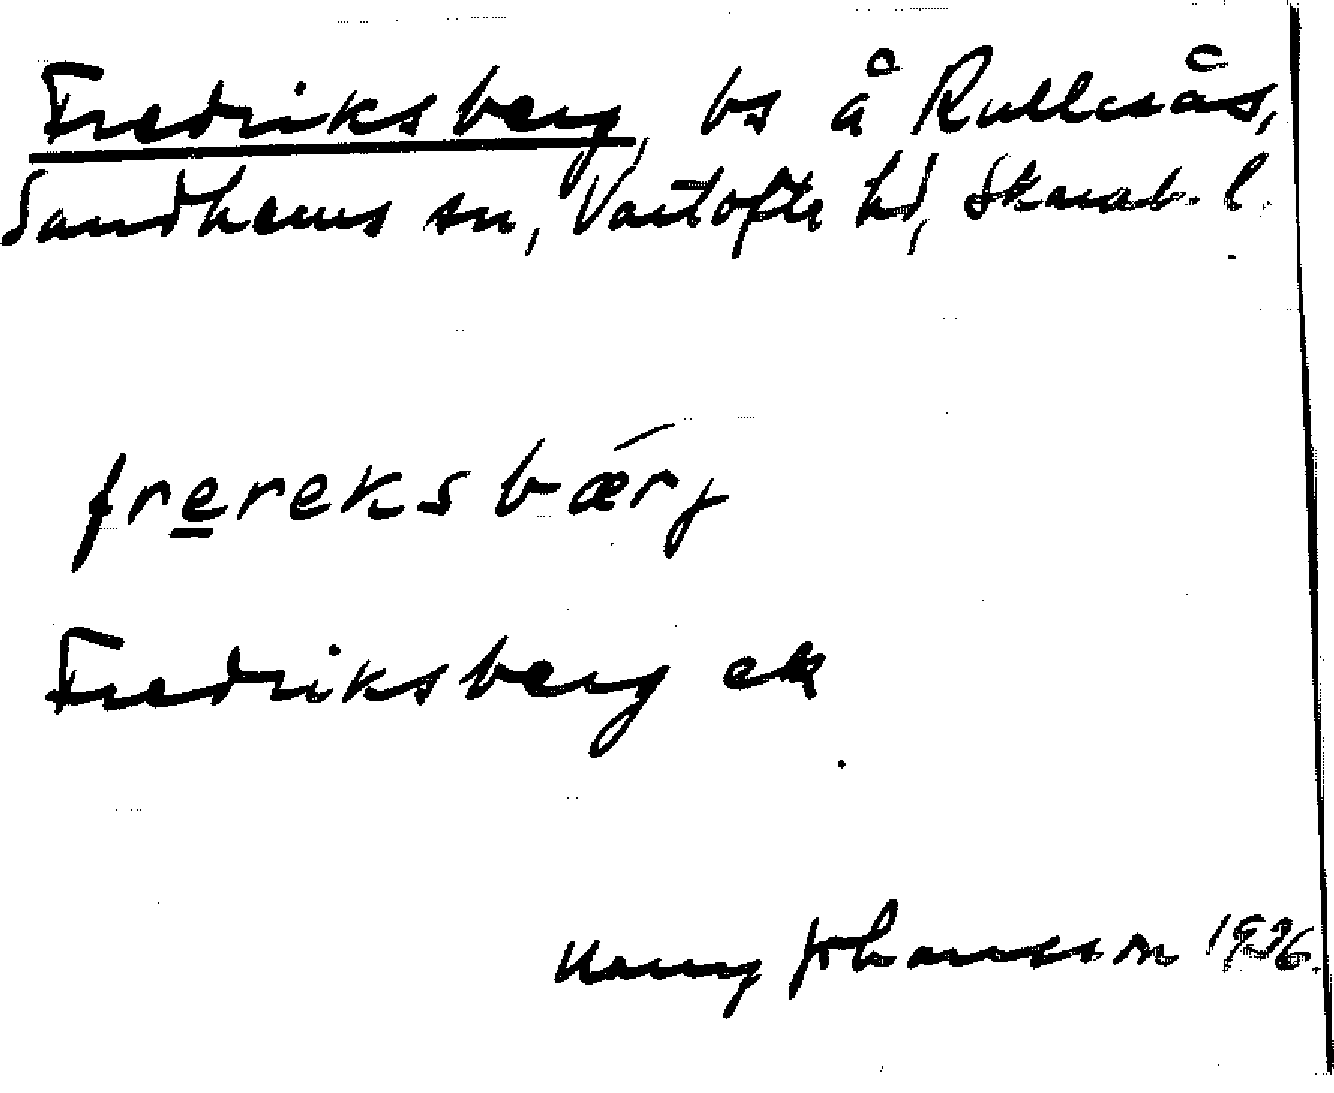 Fredriksberg, bs å Rullesås,
Sandhems sn, Vartofte hd, Skarab. l.
frereksbærj
Fredriksberg ek
Johansson 1926.